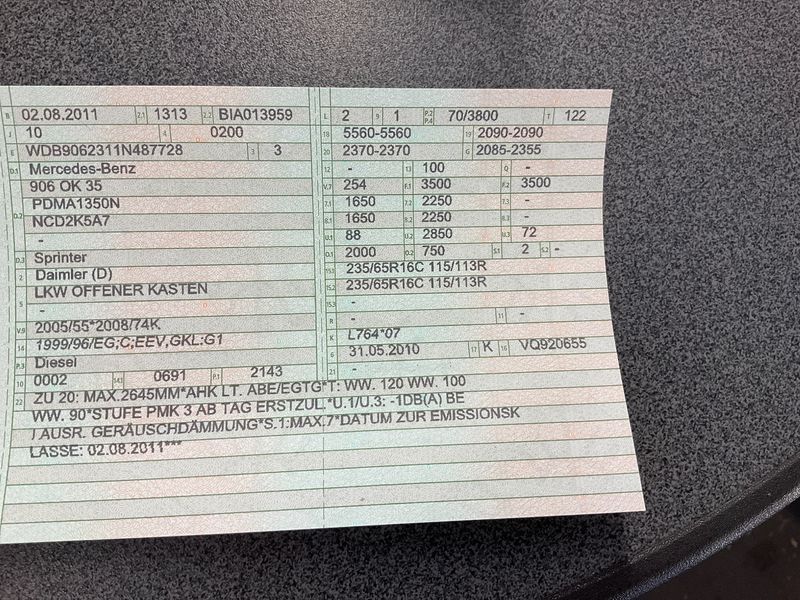 B 02.08.2011 2.1 1313 2.2 BIA013959 L 2 9 1 P.2 P.4 70/3800 T 122
J 10 4 0200 18 5560-5560 19 2090-2090
E WDB9062311N487728 3 3 20 2370-2370 G 2085-2355
D.1 Mercedes-Benz 12 - 13 100 Q -
906 OK 35 V.7 254 F.1 3500 F.2 3500
D.2 PDMA1350N 7.1 1650 7.2 2250 7.3 -
NCD2K5A7 8.1 1650 8.2 2250 8.3 -
- U.1 88 U.2 2850 U.3 72
D.3 Sprinter O.1 2000 O.2 750 S.1 2 S.2 -
2 Daimler (D) 15.1 235/65R16C 115/113R
5 LKW OFFENER KASTEN 15.2 235/65R16C 115/113R
- 15.3 -
V.9 2005/55*2008/74K R - 11 -
14 1999/96/EG;C;EEV,GKL:G1 K L764*07
P.3 Diesel 6 31.05.2010 17 K 16 VQ920655
10 0002 14.1 0691 P.1 2143 21 -
22 ZU 20: MAX.2645MM*AHK LT. ABE/EGTG*T: WW. 120 WW. 100
WW. 90*STUFE PMK 3 AB TAG ERSTZUL.*U.1/U.3: -1DB(A) BE
I AUSR. GERÄUSCHDÄMMUNG*S.1:MAX.7*DATUM ZUR EMISSIONSK
LASSE: 02.08.2011***